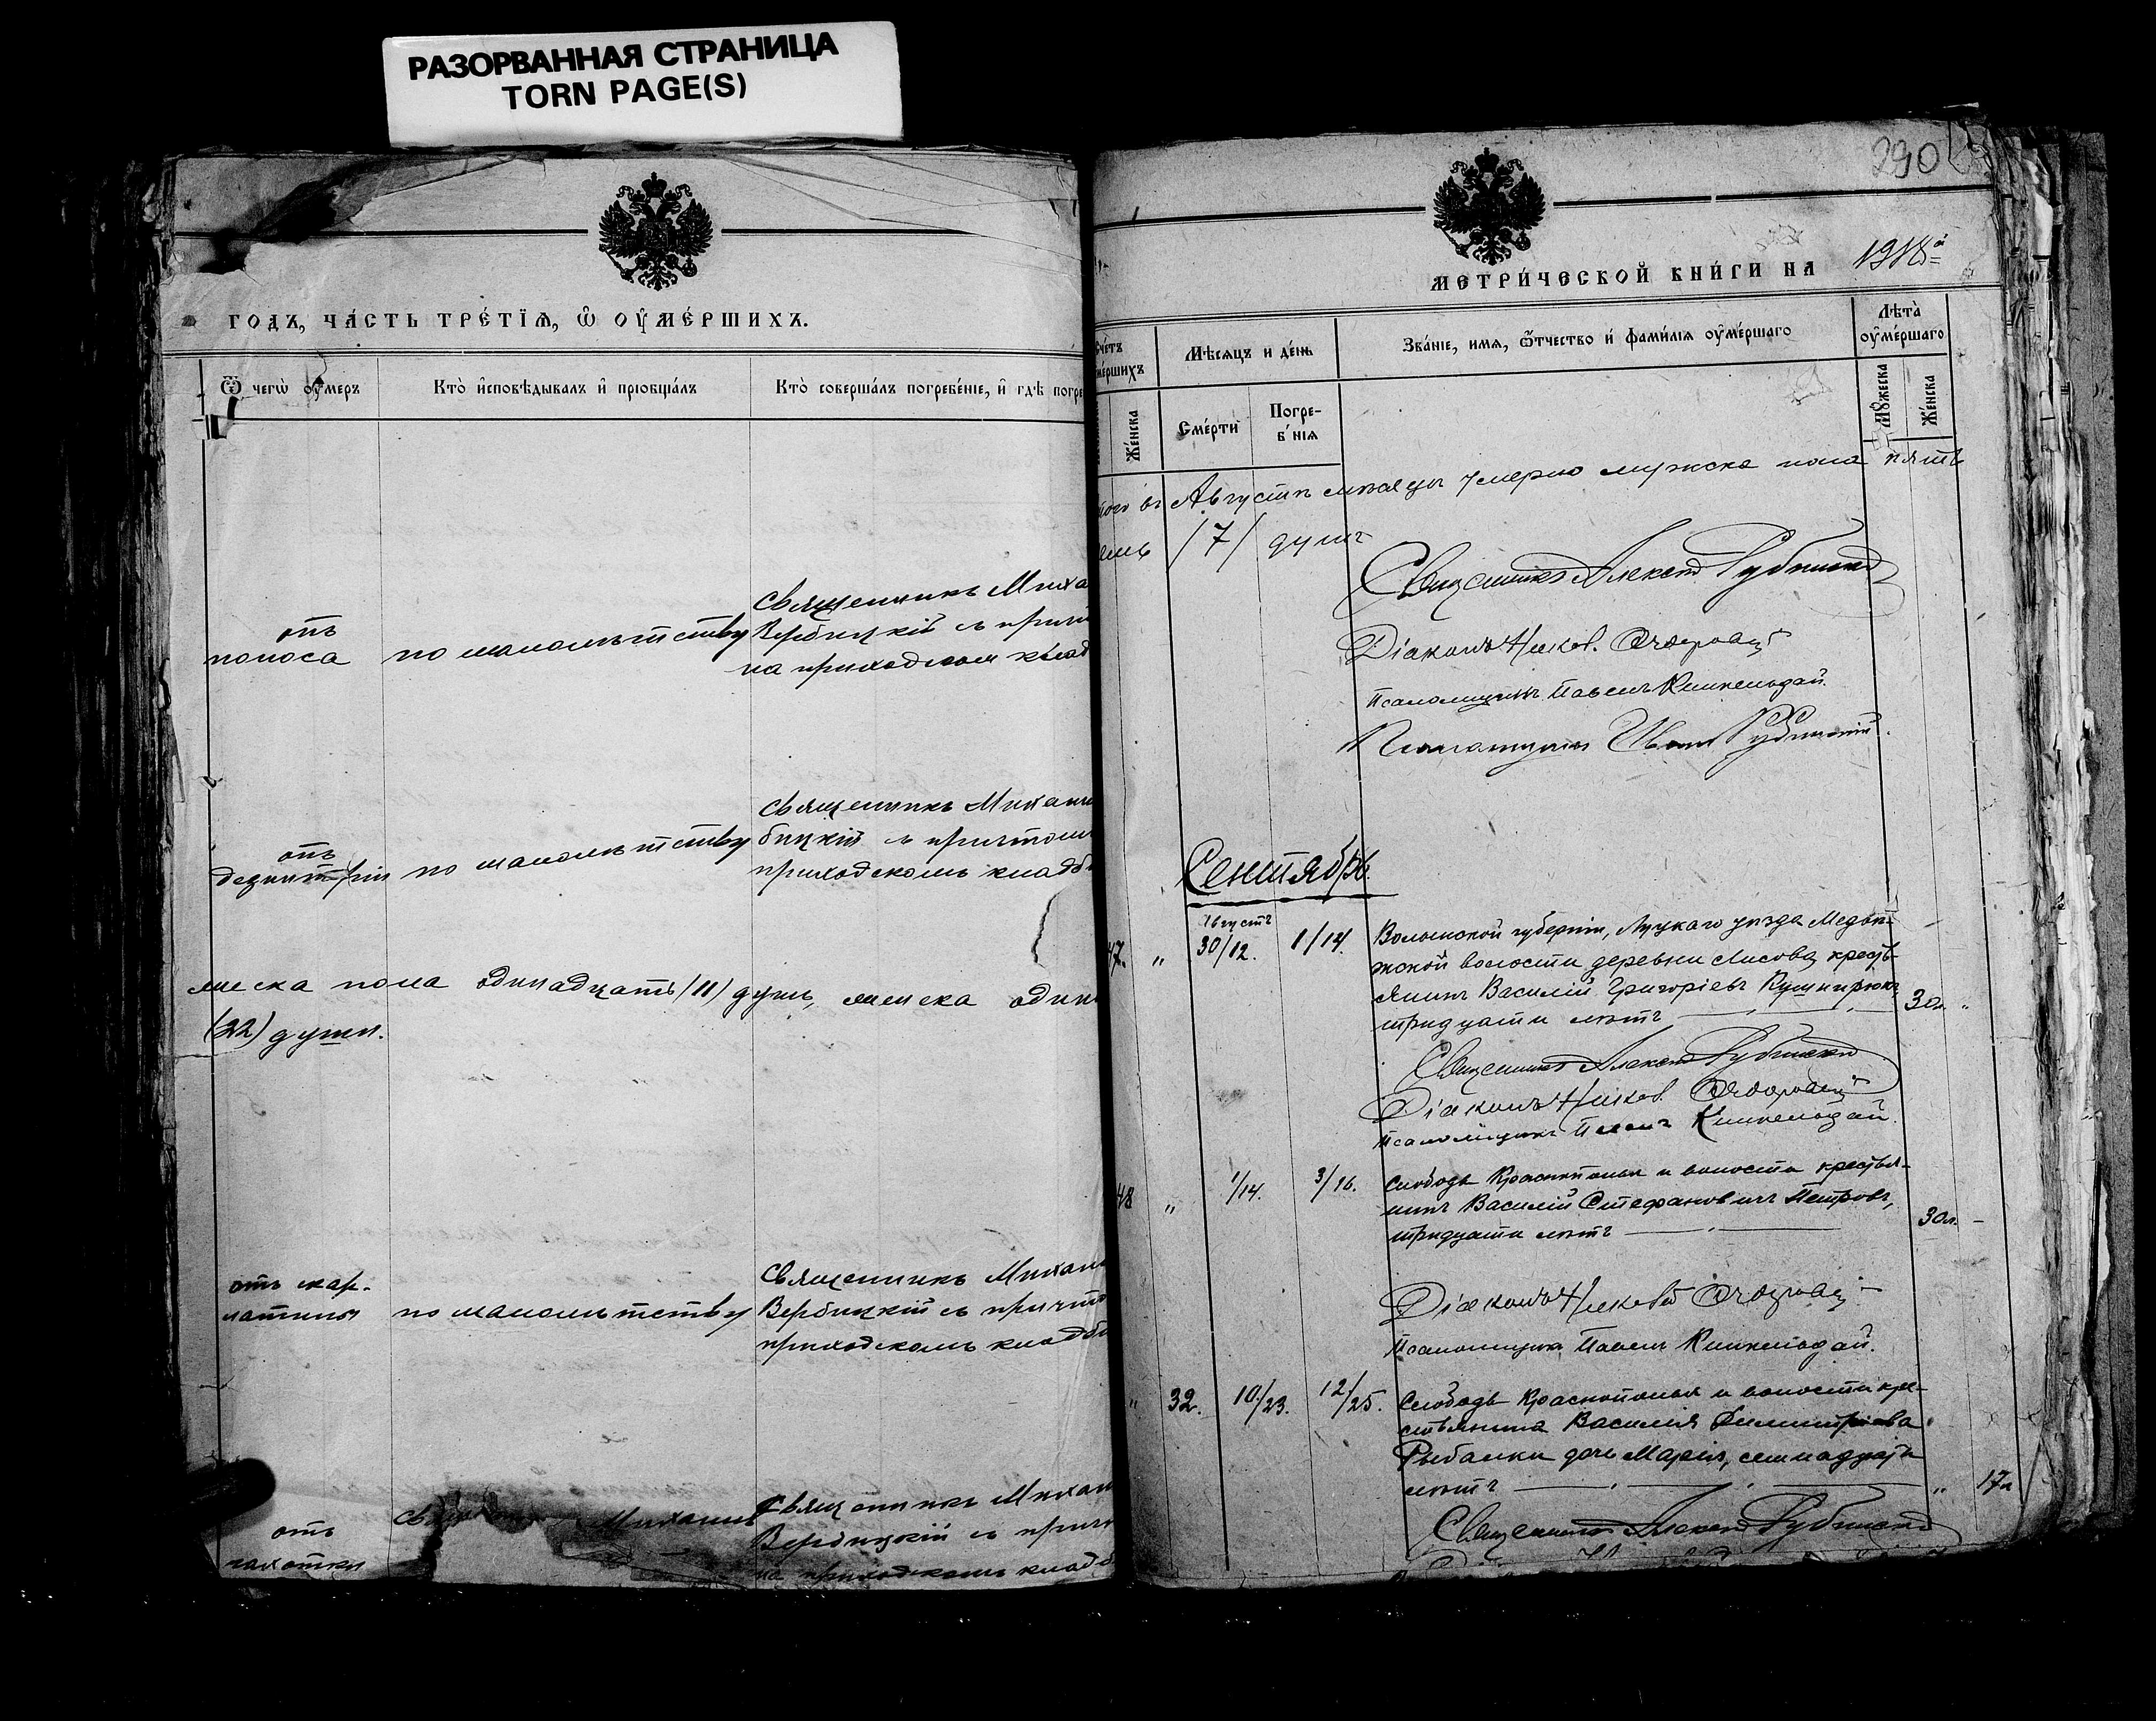 РАЗОРВАННАЯ СТРАНИЦА
TORN PAGE(S)
ГОДЪ, ЧА́СТЬ ТРЕ́ТІѦ, Ѽ ОУ҆МЕ́РШИХЪ.
Ѿ чегѡ̀ оу҆́меръ
Кто̀ и҆сповѣ́дывалъ и҆ пріѡбща́лъ
Кто̀ соверша́лъ погребе́ніе, и҆ гдѣ̀ погре
отъ
поноса
по малолѣтству
Священникъ Миха
Вербицкій съ прич
на приходском кład
отъ
дезинтеріи
по малолѣтству
Священникъ Михаи
бицкій съ причтомъ
приходскомъ кладби
жеска пола одинадцать (11) душъ, женска один
(22) души.
отъ скар-
латины
по малолѣтству
Священникъ Михаи
Вербицкій съ причто
приходскомъ кладби
отъ
чахотки
Михаилъ
Священникъ Михаи
Вербицкій съ прич
на приходскомъ кладб
290
МЕТРИ́ЧЕСКОЙ КНИ́ГИ НА 1918й
Счетъ
мершихъ
Же́нска
Мѣсѧцъ и де́нь
Сме́рти
Погре-
б нїѧ
Зва́ніе, имѧ, ѻ҆́тчество и҆ фами́ліѧ оу҆ме́ршаго
Лѣта̀
оу҆ме́ршаго
Мꙋ́жеска
Же́нска
того въ Августѣ мѣсяцѣ умерло мужска пола пять
емь /7/ душъ
Священникъ Алексѣй Рубинскій
Діаконъ Никол.
Псаломщикъ Павелъ
Псаломщикъ Иванъ Рубинскій.
Сентябрь.
47. " Августъ 30/12. 1/14. Волынской губерніи, Луцкаго уѣзда Медвѣ-
жской волости деревни Лисовец кресть-
янинъ Василій Григоріевъ Кушнирюкъ,
тридцати лѣтъ 30л. "
Священникъ Алексѣй Рубинскій
Діаконъ Никол.
Псаломщикъ Павелъ
48 " 1/14. 3/16. Слободы Краснополья и волости крестья-
нинъ Василій Стефановичъ Петровъ,
тридцати лѣтъ 30л. –
Діаконъ Николай
Псаломщикъ Павелъ
" 32. 10/23. 12/25. Слободы Краснополья и волости кре-
стьянина Василія Димитріева
Рыбалки дочь Марія, семнадцати
лѣтъ " 17л
Священникъ Алексѣй Рубинскій